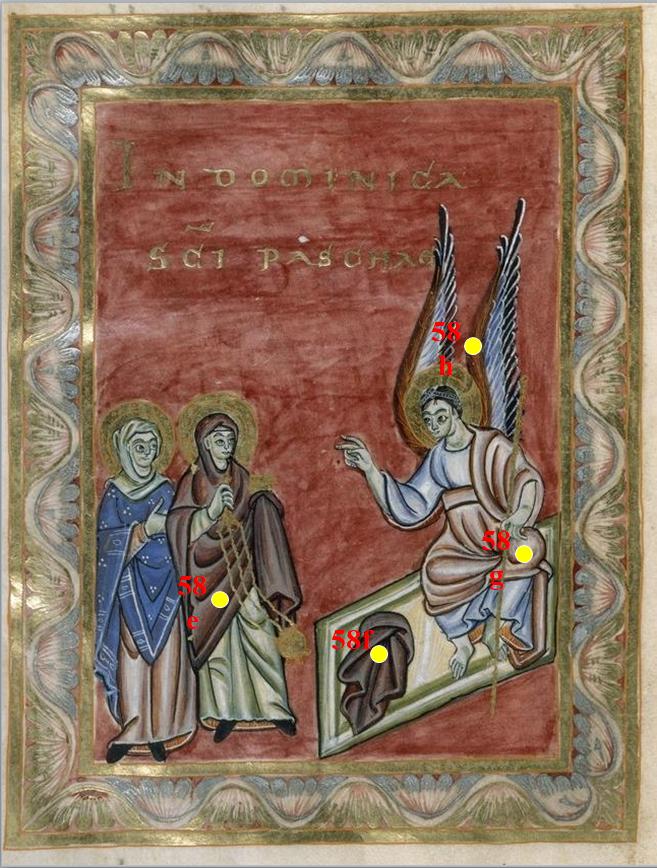 IN DOMINICA
SCI PASCHAE
58
h
58
g
58
e
58f